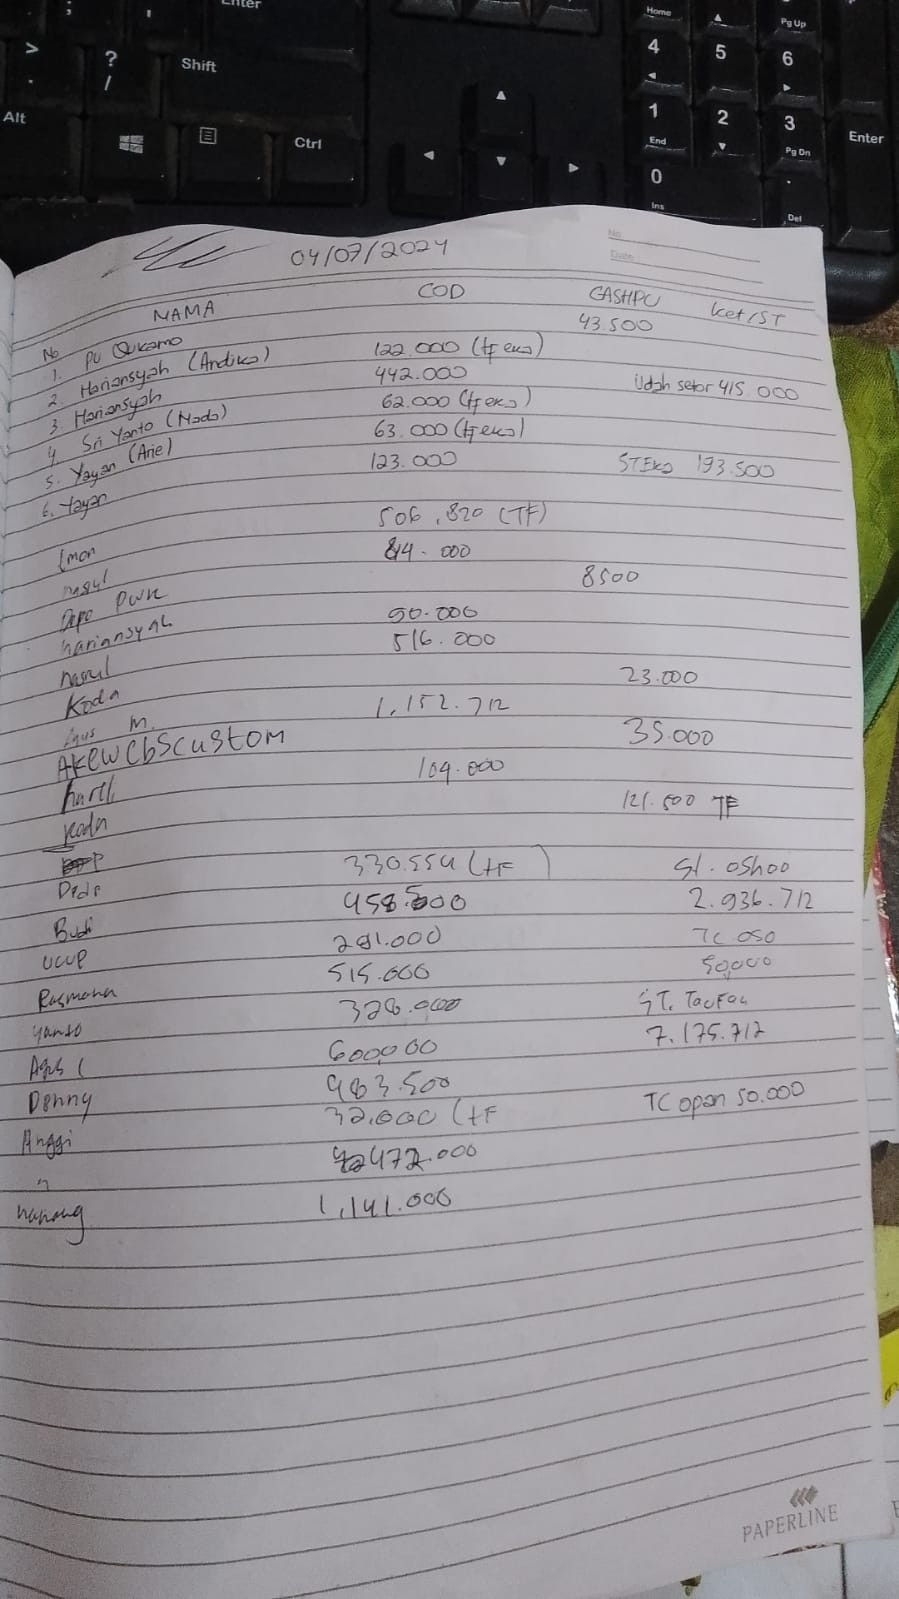 Enter
; : , '
Home ▲ Pg Up
> . ? / Shift
4 5 6
Alt Ctrl
1 2 3 Enter
End Pg Dn
0 .
Ins Del
No
Date
04/07/2024
No NAMA COD CASHPU ket/ST
1. PU Qukamo 43.500
2. Hariansyah (Andika) 122.000 (tf eko)
3. Hariansyah 442.000 Udah setor 415.000
4 Sri Yanto (Nado) 62.000 (tf eko)
5. Yayan (Arie) 63.000 (tf eko)
6. Yayan 123.000 ST Eko 193.500
Imon 506.820 (TF)
nasul 814.000
Depo PWK 8500
hariansyah 90.000
nasul 516.000
Koda 23.000
Agus M. 1.152.712
AKEWCBSCUSTOM 35.000
109.000
koda 121.500 TF
330.554 (tF)
Dede 458.500 2.936.712
Budi 281.000 TC
UCUP 515.000 50,000
Rasmana 328.000 ST. Taufan
Yanto 600000 7.175.712
Agus (
Denny 983.500
Anggi 32.000 (tF TC open 50.000
" 472.000
nanang 1.141.000
PAPERLINE